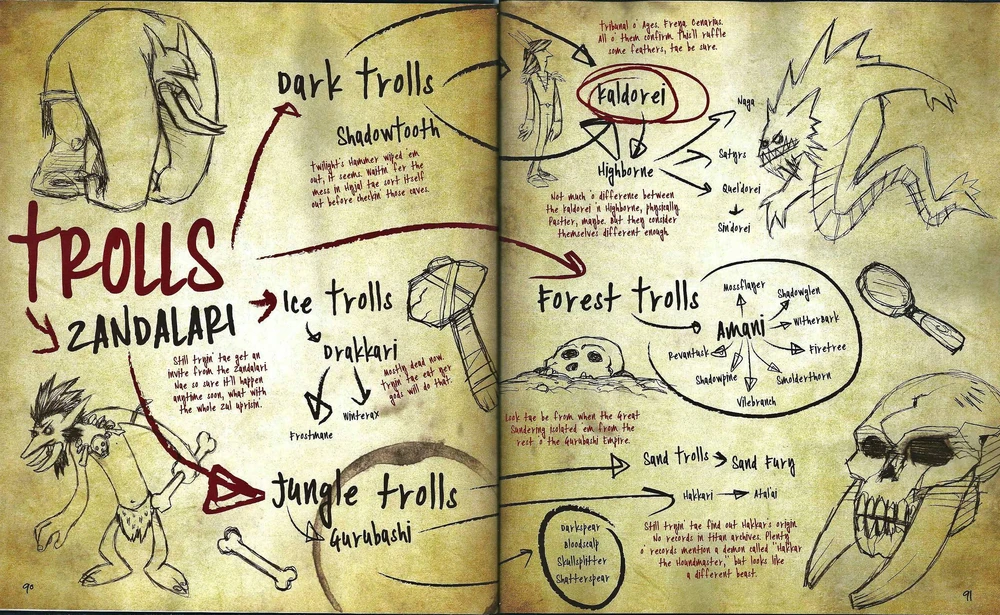 Dark Trolls
Shadowtooth
Twilight's Hammer wiped 'em
out, it seems. Waitin' fer the
mess in Hyjal tae sort itself
out before checkin' those caves.
TROLLS
ZANDALARI
Still tryin' tae get an
invite from the Zandalari.
Nae so sure it'll happen
anytime soon, what with
the whole Zul uprisin'.
Ice Trolls
Drakkari
Mostly dead now.
Tryin' tae eat yer
gods will do that.
Frostmane
Winterax
Jungle Trolls
Gurubashi
90
Tribunal o' Ages, Freya, Cenarius.
All o' them confirm this'll ruffle
some feathers, tae be sure.
Kaldorei
Highborne
Naga
Satyrs
Quel'dorei
Sin'dorei
Not much o' difference between
the Kaldorei n' Highborne, physically.
Pastier, maybe. But they consider
themselves different enough.
Forest Trolls
Amani
Mossflayer
Shadowglen
Witherbark
Firetree
Smolderthorn
Vilebranch
Shadowpine
Revantusk
Look tae be from when the Great
Sundering isolated 'em from the
rest o' the Gurubashi Empire.
Sand Trolls
Sand Fury
Hakkari
Atal'ai
Darkspear
Bloodscalp
Skullsplitter
Shatterspear
Still tryin' tae find out Hakkar's origin.
No records in titan archives. Plenty
o' records mention a demon called "Hakkar
the Houndmaster," but looks like
a different beast.
91